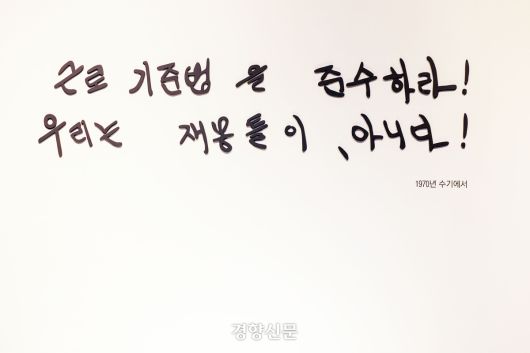 근로 기준법 을 준수하라!
우리는 재봉틀이 아니다!
1970년 수기에서
경향신문